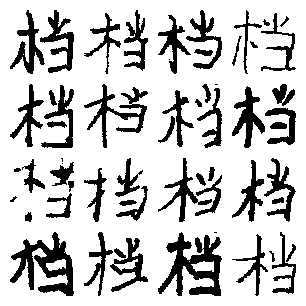 档档档档
档档档档
档档档档
档档档档